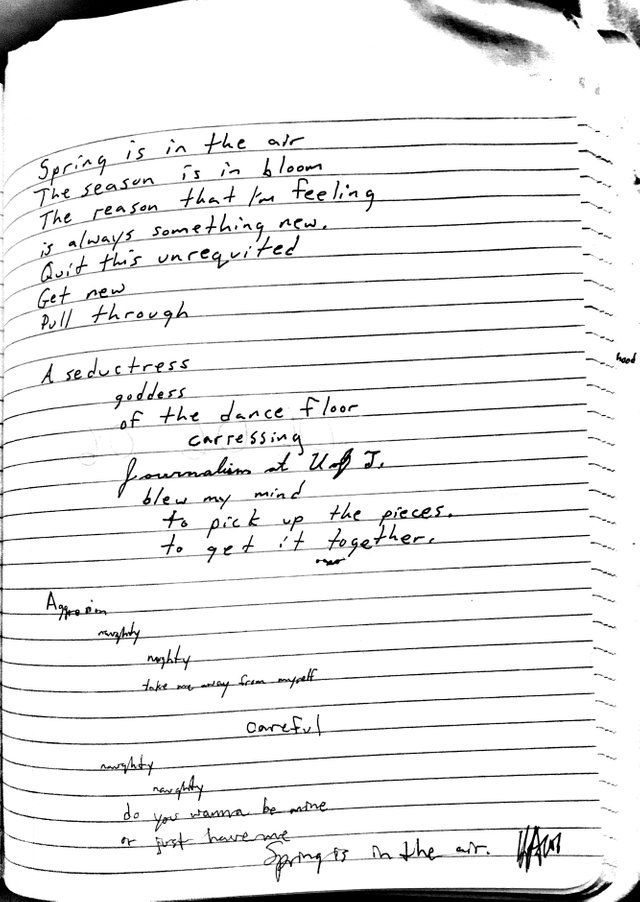 Spring is in the air
The season is in bloom
The reason that I'm feeling
is always something new.
Quit this unrequited
Get new
Pull through
A seductress
goddess
of the dance floor
carressing
Journalism at U of T.
blew my mind
to pick up the pieces.
to get it together.
naughty
naughty
take me away from myself
careful
naughty
naughty
do you wanna be mine
or just have me
Spring is in the air.